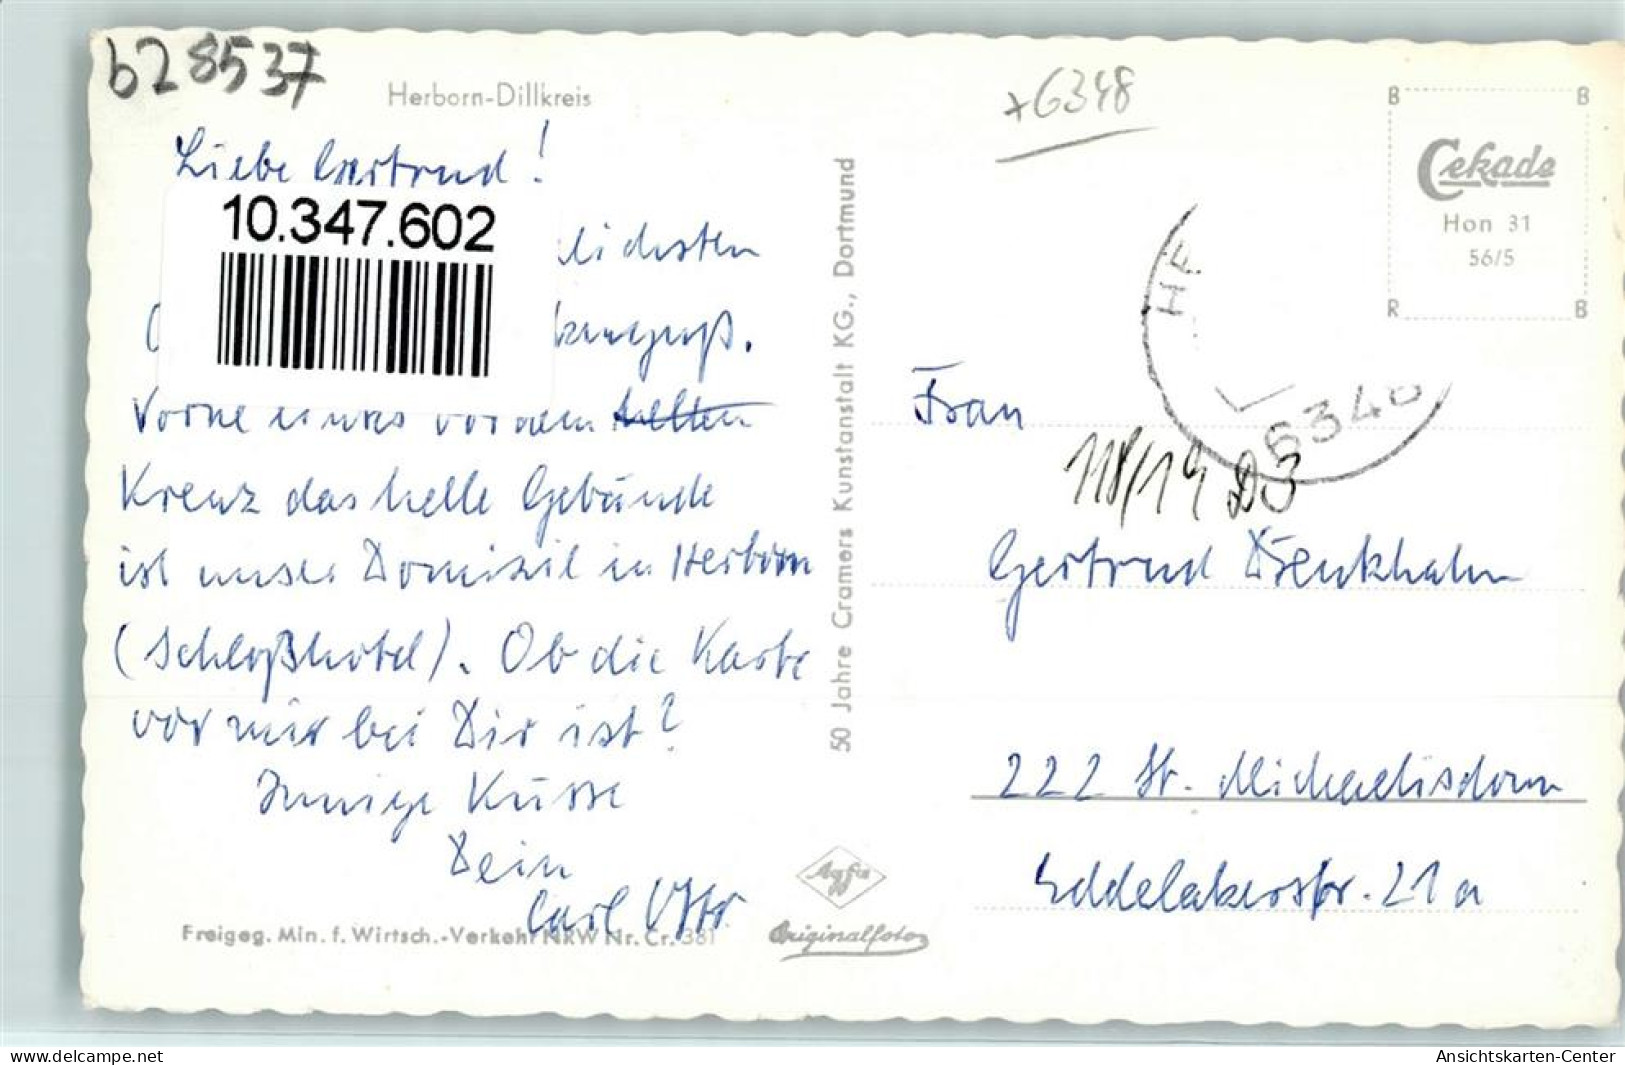 b28537
Herborn-Dillkreis
Liebe Gertrud!
10.347.602
lichsten
Vorne etwas vor dem hellen
Kreuz das helle Gebäude
ist unser Domizil in Herborn
(Schloßhotel). Ob die Karte
vor mir bei Dir ist?
Innige Küsse
Dein
Carl Otto
Freigeg. Min. f. Wirtsch.-Verkehr NRW Nr. Cr. 381
50 Jahre Cramers Kunstanstalt KG., Dortmund
Agfa
Originalfoto
+6348
B B
Cekade
Hon 31
56/5
R B
HE
6348
Frau
118/19 DJ
Gertrud
222 St. Michaelisdonn
Eddelakerstr. 21a
delcampe.net
Ansichtskarten-Center